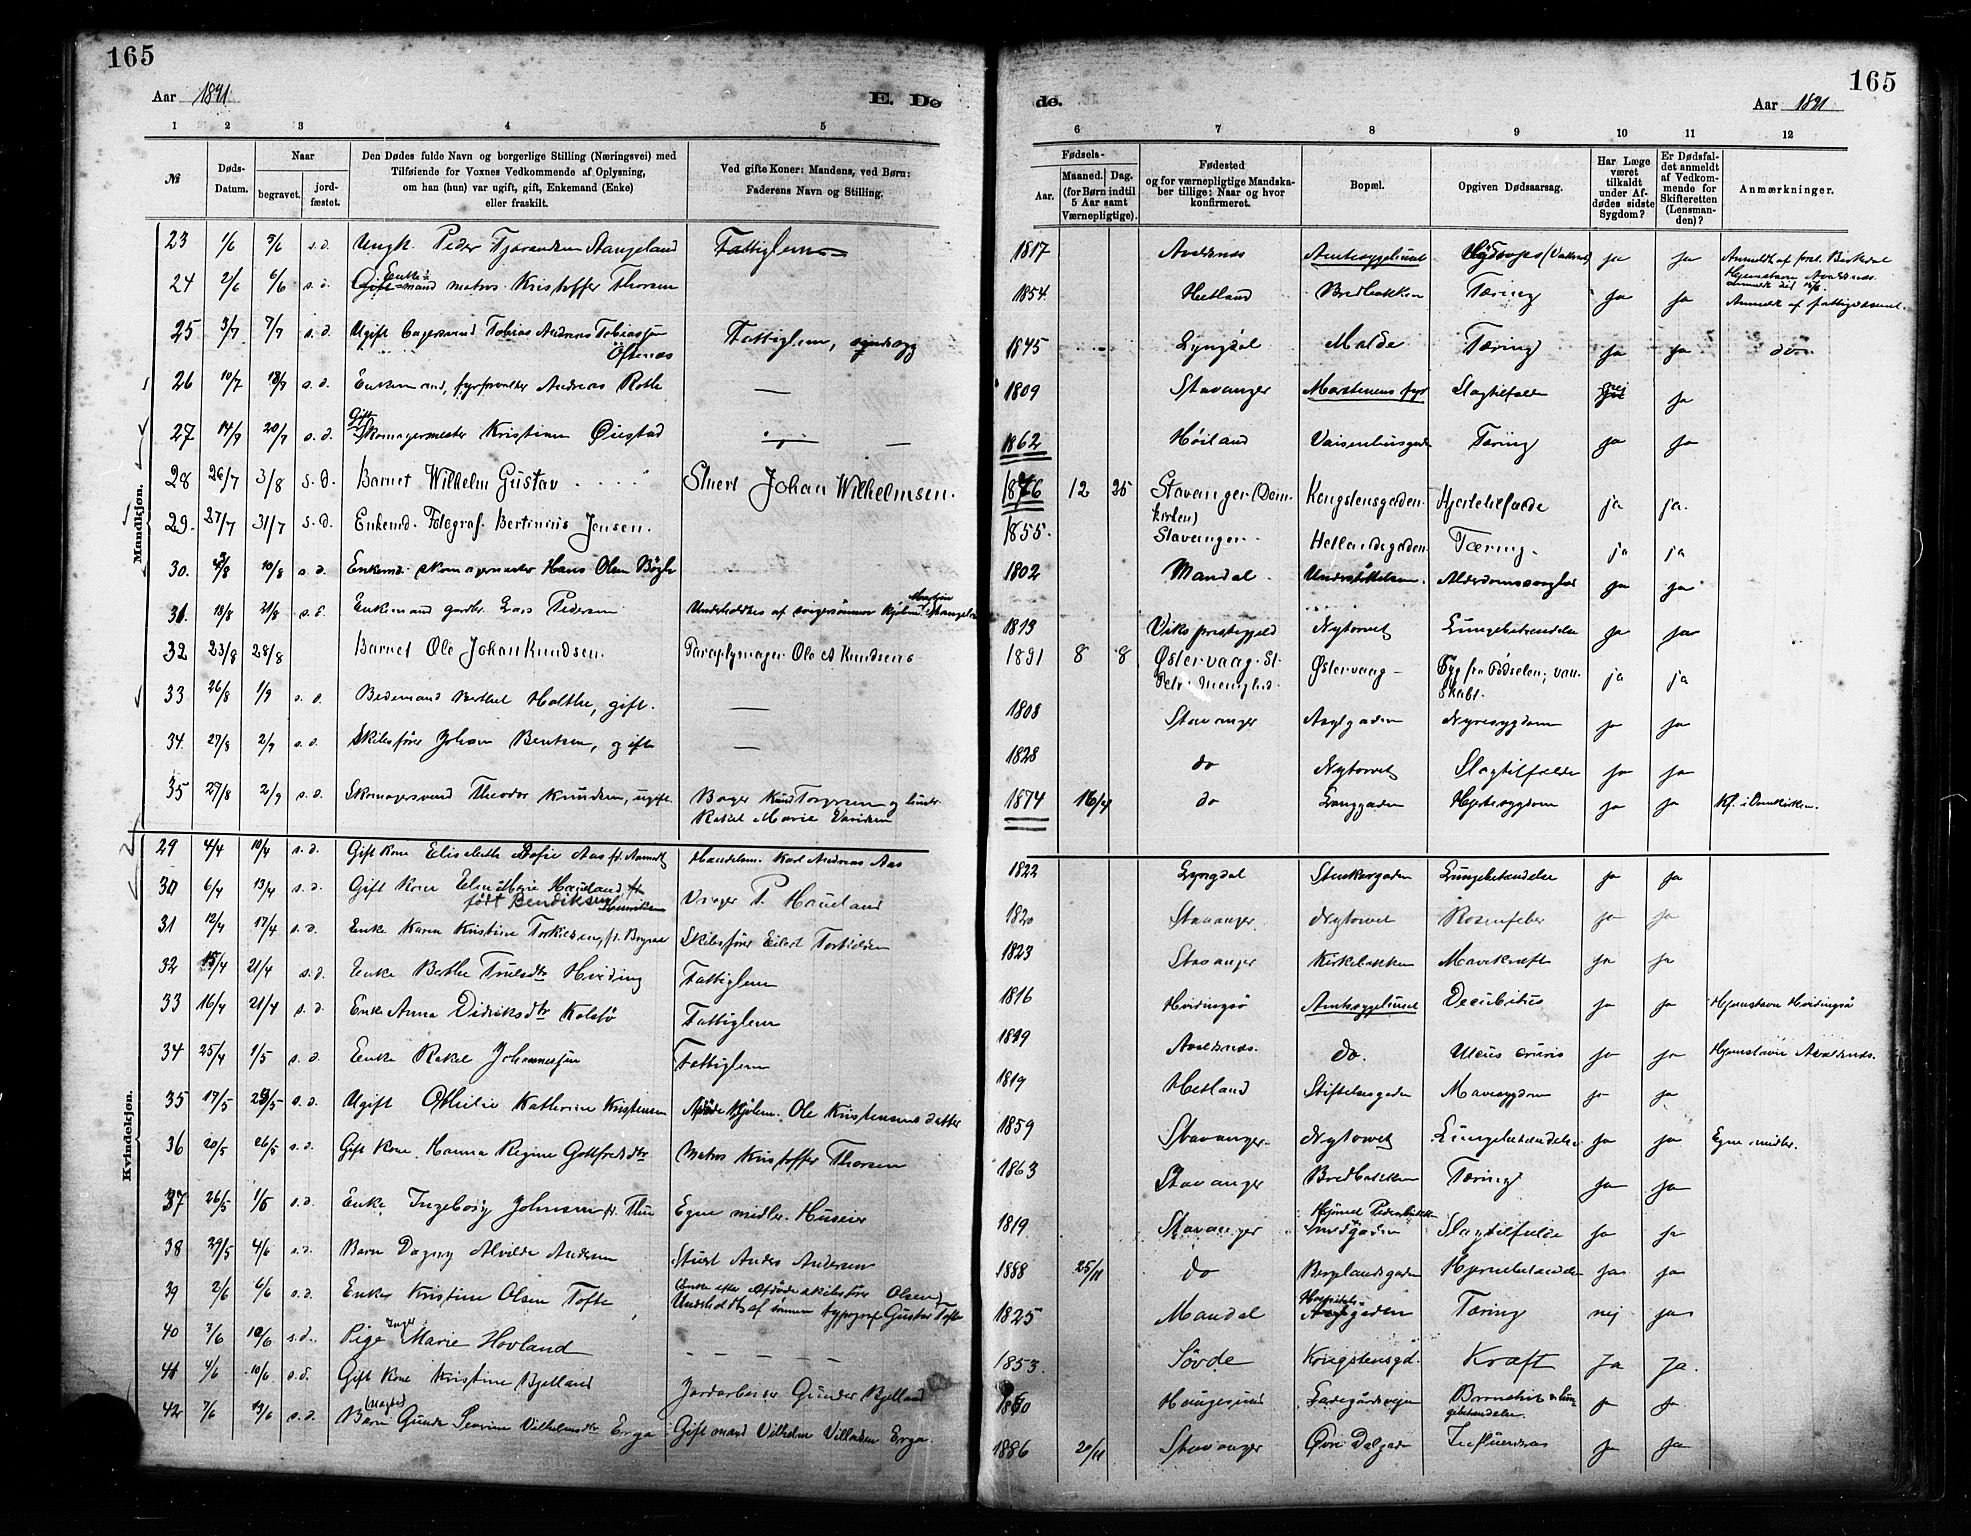 165
165
Aar 1891
E. Dø
de.
Aar 1891
1 2 3 4 5
6 7 8 9 10 11 12
№
Døds-
Datum.
Naar
begravet.
jord-
fæstet.
Den Dødes fulde Navn og borgerlige Stilling (Næringsvei) med
Tilføiende for Voxnes Vedkommende af Oplysning,
om han (hun) var ugift, gift, Enkemand (Enke)
eller fraskilt.
Ved gifte Koner: Mandens, ved Børn:
Faderens Navn og Stilling.
Fødsels-
Aar.
Maaned. Dag.
(for Børn indtil
5 Aar samt
Værnepligtige).
Fødested
og for værnepligtige Mandska-
ber tillige: Naar og hvor
konfirmeret.
Bopæl.
Opgiven Dødsaarsag.
Har Læge
været
tilkaldt
under Af-
dødes sidste
Sygdom?
Er Dødsfal-
det anmeldt
af Vedkom-
mende for
Skifteretten
(Lensman-
den)?
Anmærkninger.
Mandkjøn.
23 1/6 5/6 s.d. Ungk. Peder Tjærandsen Stangeland Fattiglem 1817 Avaldsnæs Amtssygehuset ja ja
24 2/6 6/6 s.d. Enke- mand matros Kristoffer Thorsen 1854 Hetland Bredbakken Tæring ja ja Anmeldt af fattigvæsenet.
25 3/7 7/7 s.d. Ugift Bagersvend Tobias Andreas Tobiassen Fattiglem, 1845 Lyngdal Malde Tæring ja ja do
26 10/7 18/7 s.d. Enkemand, fyrforvalter Andreas Rothe — 1809 Stavanger Marstenens fyr Slagtilfælde nei ja
27 14/7 20/7 s.d. Gift Skomagermester Kristian Øiestad — 1862 Høiland Vaisenhusgaden Tæring ja ja
28 26/7 3/8 s.d. Barnet Wilhelm Gustav Stuert Johan Wilhelmsen. 1876 12 25 Stavanger (Dom- Kongstensgaden Hjertetilfælde ja ja.
kirken)
29. 27/7 31/7 s.d. Enkemd. Fotograf. Bertinius Jensen. 1855. Stavanger. Hetlandsgaden. Tæring. ja ja
30. 10/8 s.d. Enkemd. skomagermester Hans Olsen Bøgh 1802 Mandal. Understøttelsen. Alderdomssvaghed ja ja
31. 18/8 21/8 s.d. Enkemand gardbr. Lars Pedersen Underholdtes af svigersønnen 1813 Viks prestegjeld Nytorvet Lungebetændelse ja ja
32 23/8 28/8 Barnet Ole Johan Knudsen. Paraplymager Ole A Knudsens 1891 8 8 Østervaag. St. Østervaag - Syg fra Fødselen; van- ja ja
Petri Menighed. skabt.
33 26/8 1/9 s.d. Bedemand Berthel Holthe, gift. — 1808 Stavanger Asylgaden Nyresygdom ja ja
34. 27/8 2/9 s.d. Skibsfører Johan Bentsen, gift — 1828 do Nytorvet Slagtilfælde ja ja
35 27/8 2/9 s.d. Skomagersvend Theodor Knudsen, ugift. Bager Knud Torgersen og hustr. 1874 16/4 do Langgaden Hjertesygdom ja ja Kf. i Domkirken.
Rakel Marie
Kvindekjøn.
29 4/4 10/4 s.d. Gift kone Elisabeth Sofie Aas Handelsm. Karl Andreas Aas 1822 Lyngdal Stenkargaden Lungebetændelse ja ja
30 6/4 13/4 s.d. Gift Kone Elen Marie Haueland P. Haueland 1820 Stavanger Nytorvet Rosenfeber ja ja
født Bendiksen
31 12/4 17/4 s.d. Enke Karen Kristine Torkildsen, f. Bryne Skibsfører Eilert Torkildsen 1823 Stavanger Kirkebakken Mavekræft ja ja
32 15/4 21/4 s.d. Enke Berthe Truelsdtr Hviding Fattiglem 1816 Hvidingsø Amtssygehuset Decubitus ja ja Hjemstavn Hvidingsø
33 16/4 21/4 s.d. Enke Anna Didriksdtr Kolstø Fattiglem Avaldsnæs. do. Ulcus cruris ja ja Hjemstavn Avaldsnæs.
34 25/4 1/5 s.d. Enke Rakel Johannessen Fattiglem 1819 Hetland Stiftelsesgaden Mavesygdom ja ja
35 17/5 23/5 s.d. Ugift Othilie Kathrine Kristensen Ole Kristensens datter 1859 Stavanger. Nytorvet Lungebetændelse ja ja Egne midler.
36 20/5 26/5 s.d. Gift kone. Hanna Regine Gottfredsdtr Matros Kristoffer Thorsen 1863 Stavanger Bredbakken Tæring ja ja
37 26/5 1/6 s.d. Enke Ingeborg Johnsen f. Thu Egne midler. Huseier 1819 Stavanger Smedgaden Slagtilfælde ja ja
38 29/5 4/6 s.d. Barn Dagny Alvilde Andersen Stuert Anders Andersen 1888 25/11 do Bergelandsgaden Hjernebetændelse ja ja
39 2/6 6/6 s.d. Enke Kristine Olsen Tofte Enke efter Afdøde skibsfører Olsen. 1825 Mandal Hospitals- gaden Tæring nej ja
Underholdts af sønnen typograf Gustav Tofte
40 3/6 10/6 s.d. Pige Inger Marie Hovland — — — 1853. Søvde Kongstensgd. Kræft Ja Ja.
41 4/6 10/6 s.d. Gift kone Kristine Bjelland Jordarbeider Gunder Bjelland Haugesund Ladegårdsveien Bronchit & lun- ja ja
gebetændelse
42 7/6 13/6 s.d. Barn Severine Vilhelmsdtr Erga Gift mand Vilhelm Villadsen Erga. 1886 20/11 Stavanger Øvre Dalgade Influenza ja ja